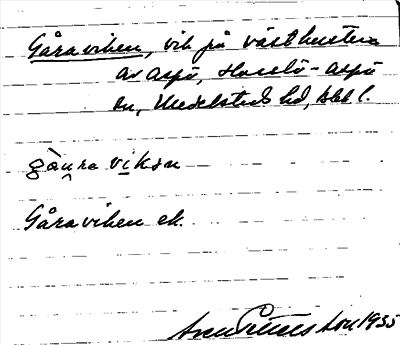 Gåraviken, vik på västkusten
av Aspö, Hasslö-Aspö
sn, Medelstads hd, Blek l.
gåura vikən
Gåraviken ek.
Sven 1935